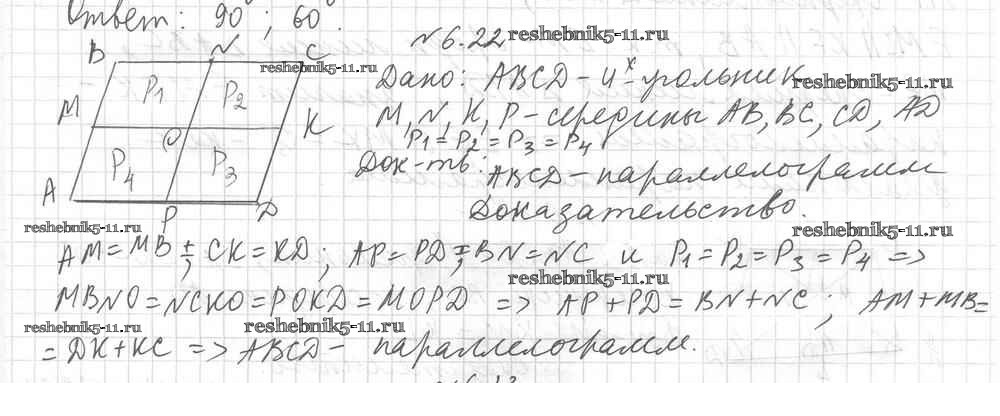 Ответ: 90°; 60°.
№6.22
reshebnik5-11.ru
B N C
reshebnik5-11.ru
Дано: ABCD – 4-х угольник
reshebnik5-11.ru
P1 P2
M K
M, N, K, P – середины AB, BC, CD, AD
P1 = P2 = P3 = P4
O
P4 P3
Док-ть: ABCD – параллелограмм
A P D
Доказательство.
reshebnik5-11.ru
reshebnik5-11.ru
AM = MB; CK = KD; AP = PD; BN = NC и P1 = P2 = P3 = P4 =>
reshebnik5-11.ru
MBNO = NCKO = POKD = MOPD => AP + PD = BN + NC; AM + MB =
reshebnik5-11.ru
reshebnik5-11.ru
= DK + KC => ABCD – параллелограмм.
reshebnik5-11.ru